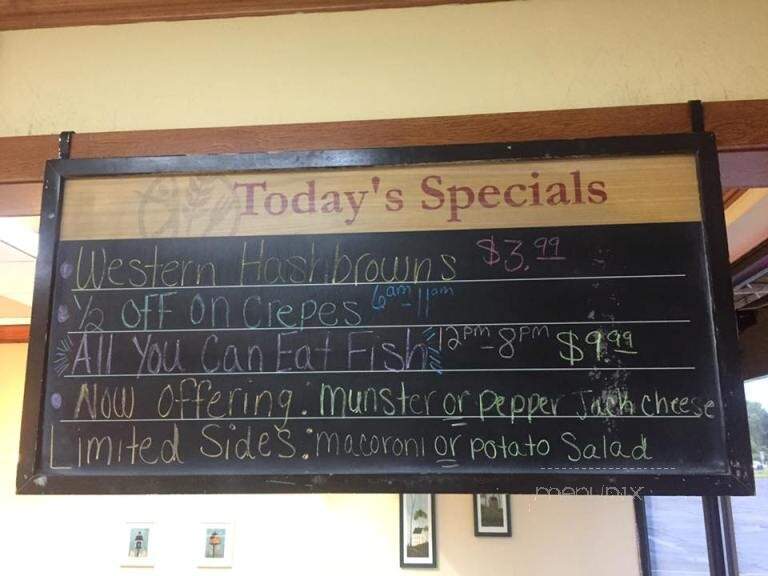 Today's Specials
Western Hashbrowns $3.99
1/2 off on Crepes 6am-11am
All You Can Eat Fish 12pm-8pm $9.99
Now offering: munster or pepper Jack cheese
Limited Sides: macoroni or potato Salad
menupix